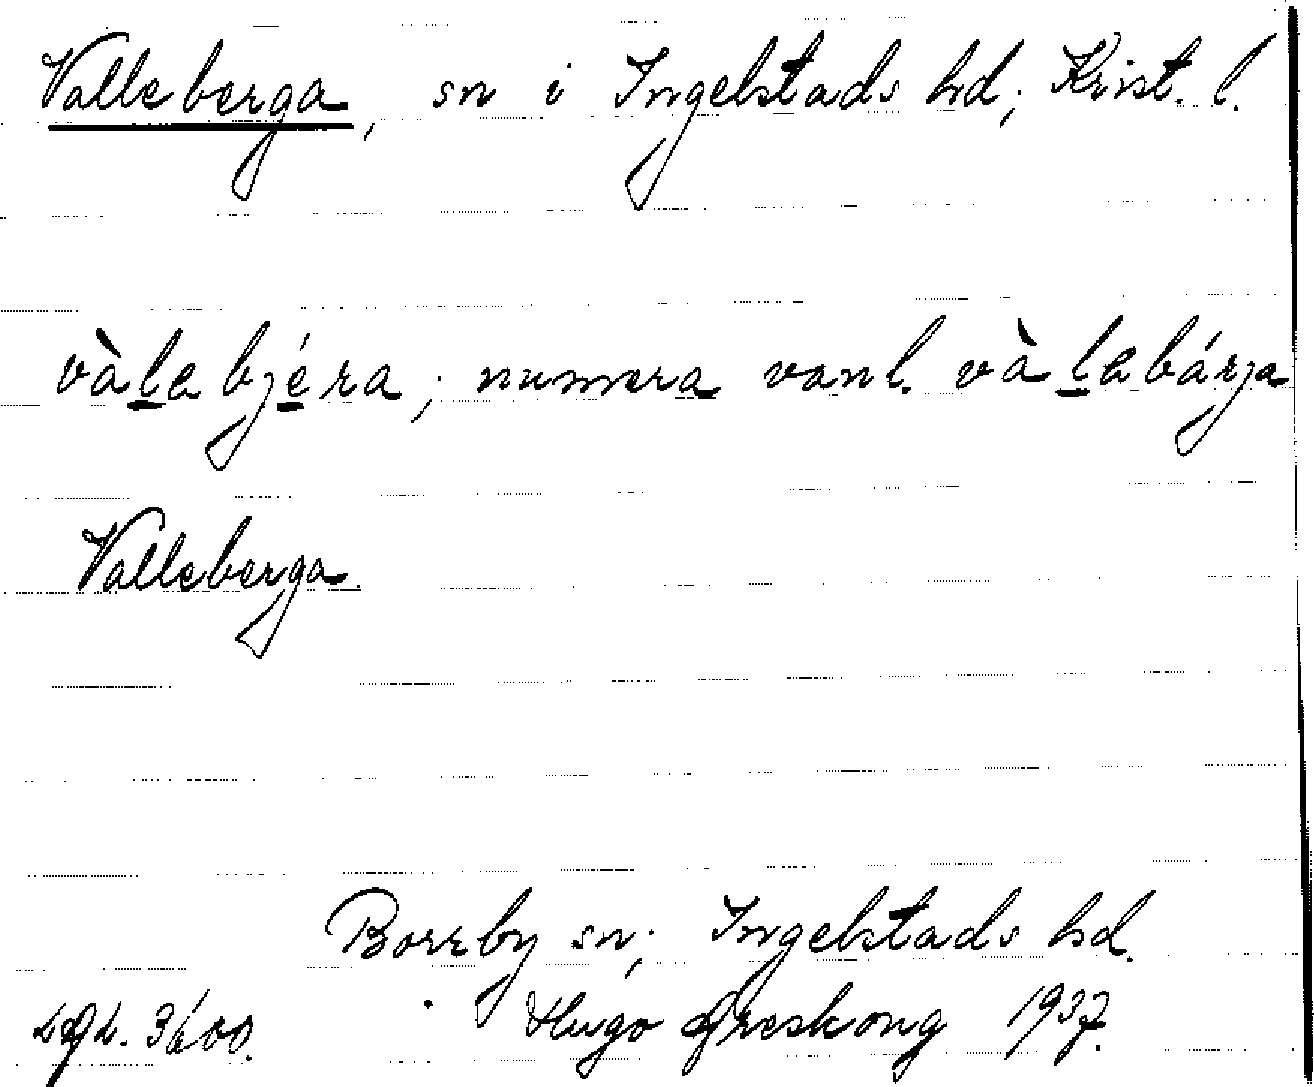 Valleberga, sn i Ingelstads hd; Krist. l.
vàlebjéra; numera vanl. vàlebárja
Valleberga.
Borrby sn; Ingelstads hd.
Hugo Areskoug 1937.